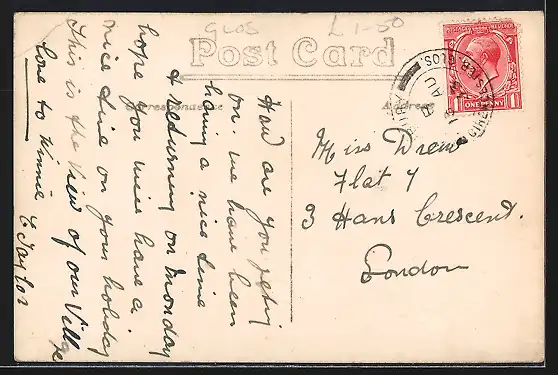 GLOS £1-50
Post Card
Correspondence
Address
How are you getting
on. we have been
having a nice time
& Returning on Monday
hope you will have a
nice time on your holiday
This is the View of our Village
love to Winnie E Taylor
Miss Drew
Flat 7
3 Hans Crescent.
London
POSTAGE REVENUE
ONE PENNY
1 1
AU
GLOS